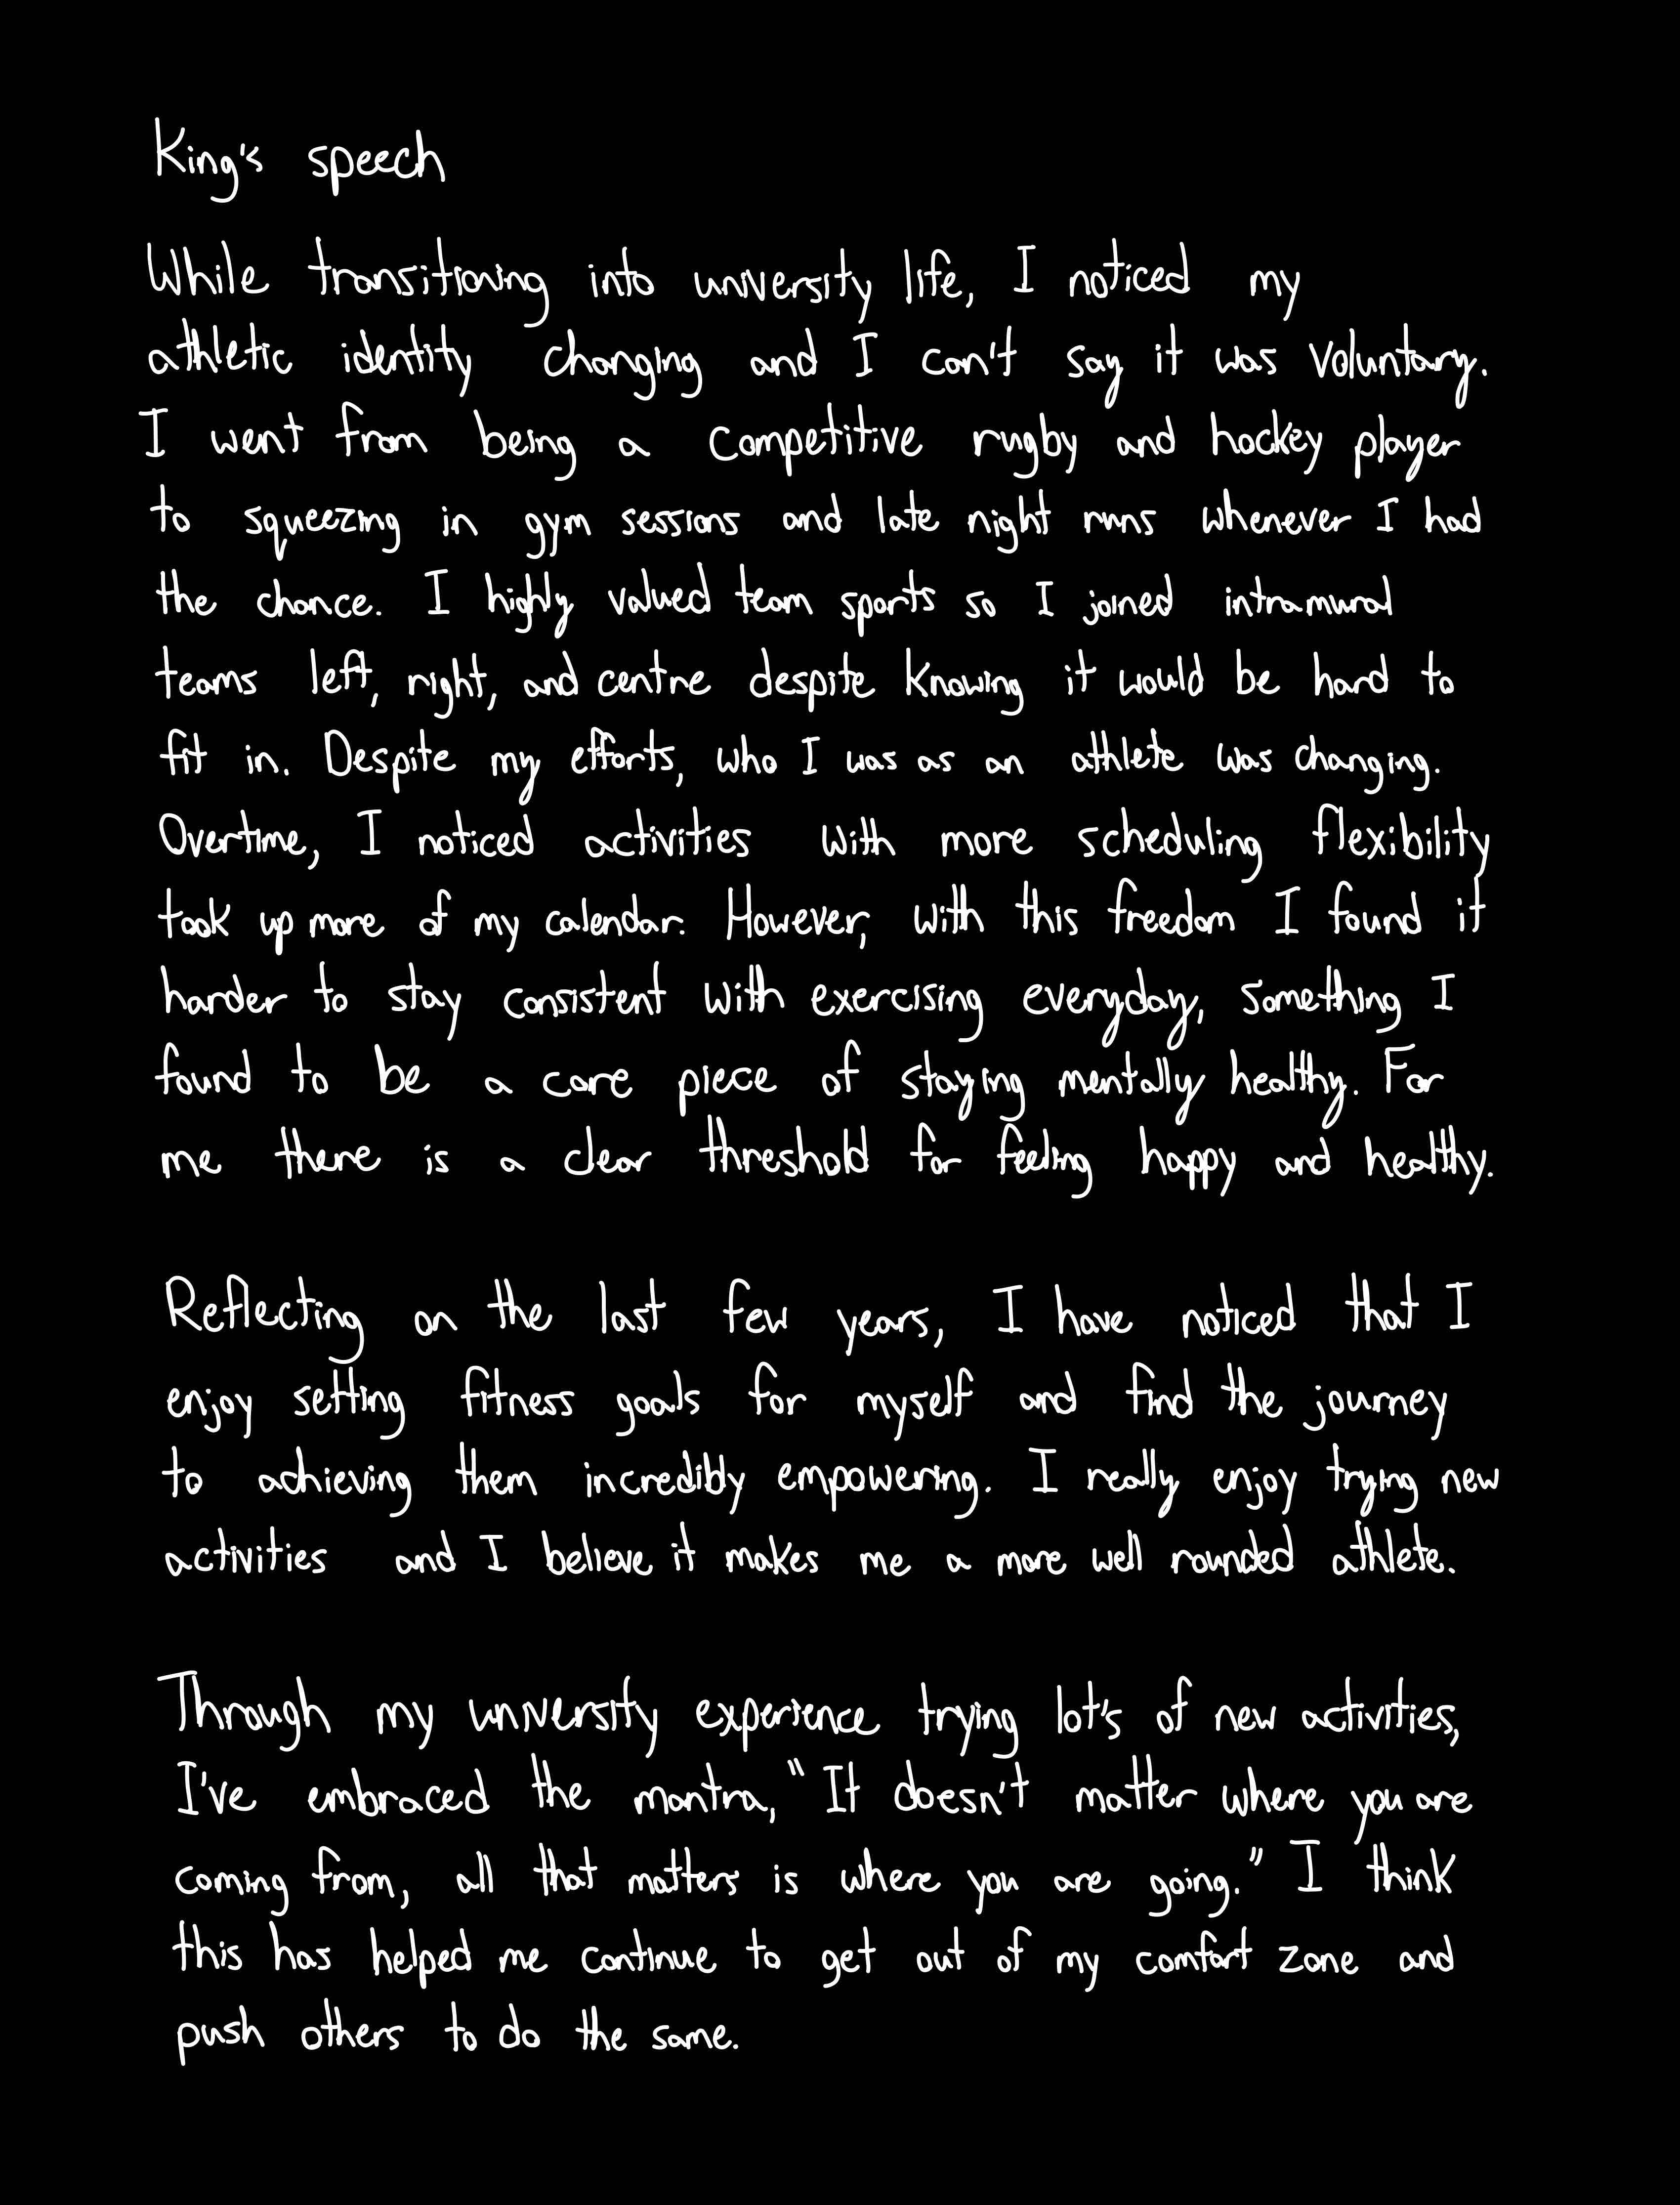 King's speech
While transitioning into university life, I noticed my
athletic identity changing and I can't say it was voluntary.
I went from being a competitive rugby and hockey player
to squeezing in gym sessions and late night runs whenever I had
the chance. I highly valued team sports so I joined intramural
teams left, right, and centre despite knowing it would be hard to
fit in. Despite my efforts, who I was as an athlete was changing.
Overtime, I noticed activities with more scheduling flexibility
took up more of my calendar. However, with this freedom I found it
harder to stay consistent with exercising everyday, something I
found to be a core piece of staying mentally healthy. For
me there is a clear threshold for feeling happy and healthy.
Reflecting on the last few years, I have noticed that I
enjoy setting fitness goals for myself and find the journey
to achieving them incredibly empowering. I really enjoy trying new
activities and I believe it makes me a more well rounded athlete.
Through my university experience trying lot's of new activities,
I've embraced the mantra, "It doesn't matter where you are
coming from, all that matters is where you are going." I think
this has helped me continue to get out of my comfort zone and
push others to do the same.